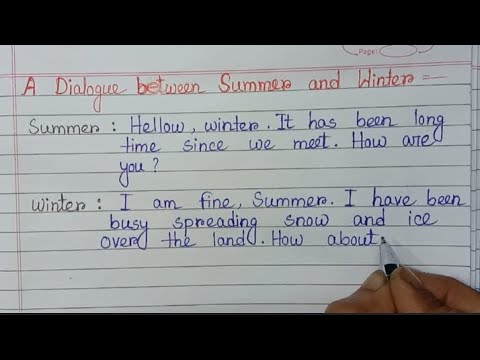 Page:
A Dialogue between Summer and Winter :-
Summer : Hellow, winter. It has been long
time since we meet. How are
you ?
Winter : I am fine, Summer. I have been
busy spreading snow and ice
over the land. How about